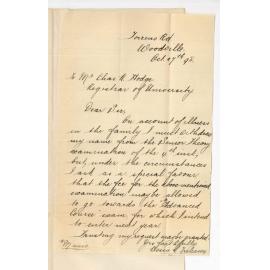 Torrens Rd
Woodville
Oct. 17th 92
To Mr Chas R. Hodge
Registrar of University
Dear Sir,
On account of illness
in the family I must withdraw
my name from the Senior Theory
examination of the 4th inst,
but, under the circumstances
I ask as a special favour
that the fee for the above mentioned
examination maybe allowed
to go towards the Advanced
Course exam for which I intend
to enter next year.
Trusting my request maybe granted
Yrs faithfully